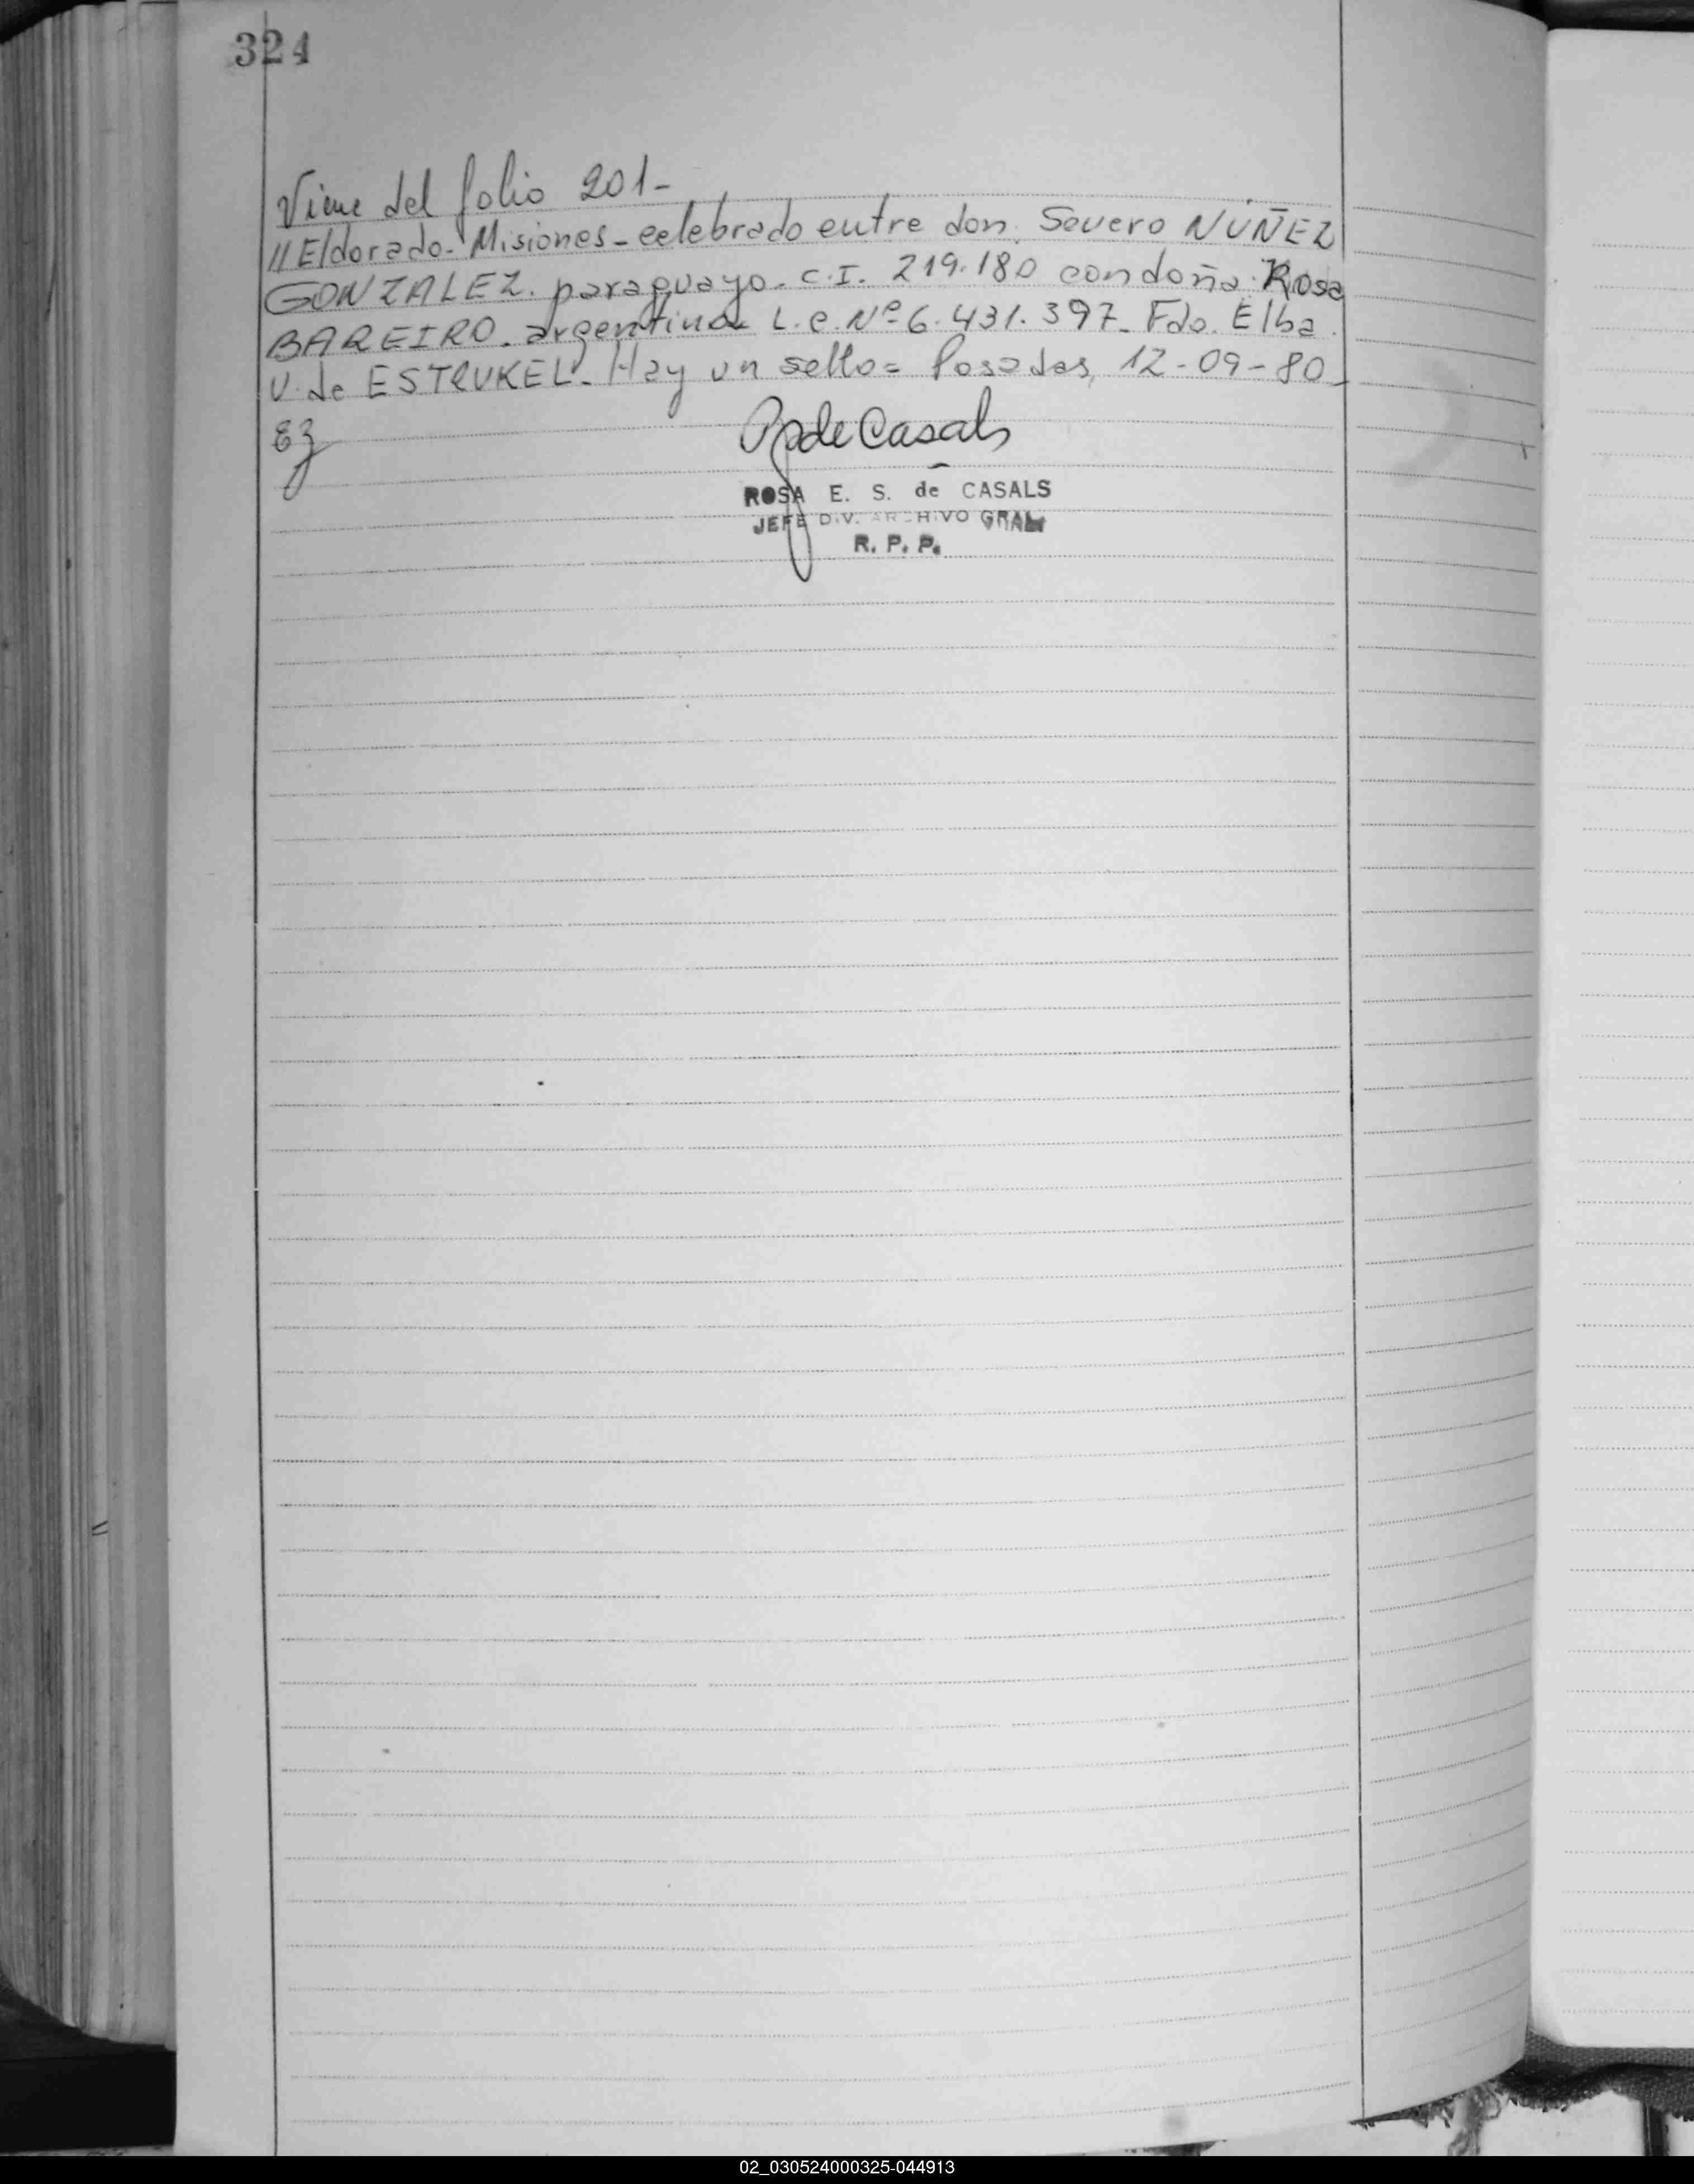 324
Viene del folio 201-
// Eldorado- Misiones- celebrado entre don Severo NUÑEZ
GONZALEZ. paraguayo. C.I. 219.180 con doña Rosa
BAREIRO. argentina L.C. Nº 6.431.397- Fdo. Elba
V. de ESTRUKEL- Hay un sello= Posadas, 12-09-80-
de Casals
ROSA E. S. de CASALS
JEFE DIV. ARCHIVO GRAL
R. P. P.
02_030524000325-044913